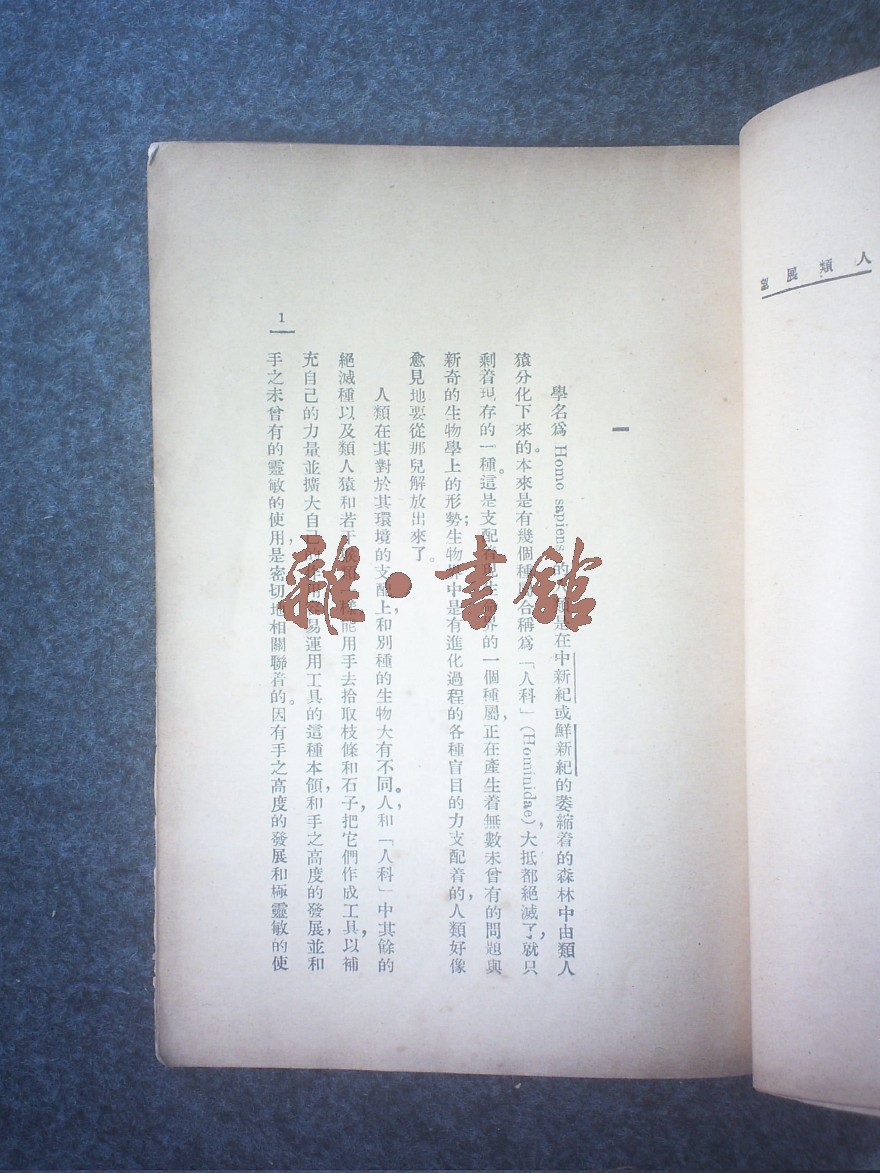 人類展望
一
學名爲 Homo sapiens 的類是在中新紀或鮮新紀的萎縮着的森林中由類人
猿分化下來的。本來是有幾個種合稱爲「人科」(Hominidae)，大抵都絕滅了，就只
剩着現存的一種。這是支配界的一個種屬，正在產生着無數未曾有的問題與
新奇的生物學上的形勢；生物界中是有進化過程的各種盲目的力支配着的，人類好像
愈見地要從那兒解放出來了。
人類在其對於其環境的支配上，和別種的生物大有不同。人和「人科」中其餘的
絕滅種以及類人猿和若干能用手去拾取枝條和石子，把它們作成工具，以補
充自己的力量並擴大自己易運用工具的這種本領，和手之高度的發展，並和
手之未曾有的靈敏的使用，是密切地相關聯着的。因有手之高度的發展和極靈敏的使
1
雜·書館